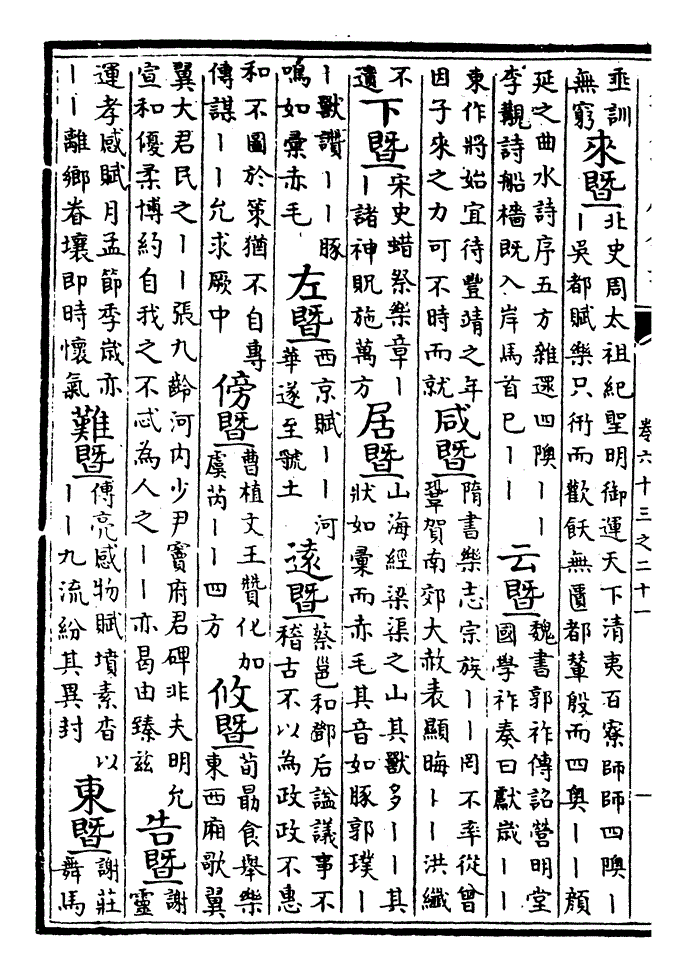 卷六十三之二十一
一
垂訓
無窮
來暨
北史周太祖紀聖明御運天下清夷百寮師師四隩丨
丨吳都賦樂只衎而歡飫無匱都輦殷而四奧丨丨顏
延之曲水詩序五方雜遝四隩丨丨
李觀詩船檣既入岸馬首已丨丨
云暨
魏書郭祚傳詔營明堂
國學祚奏曰獻歲丨丨
東作將始宜待豐靖之年
因子來之力可不時而就
咸暨
隋書樂志宗族丨丨罔不率從曾
鞏賀南郊大赦表顯晦丨丨洪纖
不
遺
下暨
宋史蜡祭樂章丨
丨諸神貺施萬方
居暨
山海經梁渠之山其獸多丨丨其
狀如彙而赤毛其音如豚郭璞丨
丨獸讚丨丨豚
鳴如彙赤毛
左暨
西京賦丨丨河
華遂至虢土
遠暨
蔡邕和鄧后謚議事不
稽古不以為政政不惠
和不圖於策猶不自專
傳謀丨丨允求厥中
傍暨
曹植文王贊化加
虞芮丨丨四方
攸暨
荀勗食舉樂
東西廂歌翼
翼大君民之丨丨張九齡河内少尹竇府君碑非夫明允
宣和優柔博約自我之不忒為人之丨丨亦曷由臻兹
告暨
謝
靈
運孝感賦月孟節季歲亦
丨丨離鄉眷壤即時懷氣
難暨
傅亮感物賦墳素杳以
丨丨九流紛其異封
東暨
謝莊
舞馬